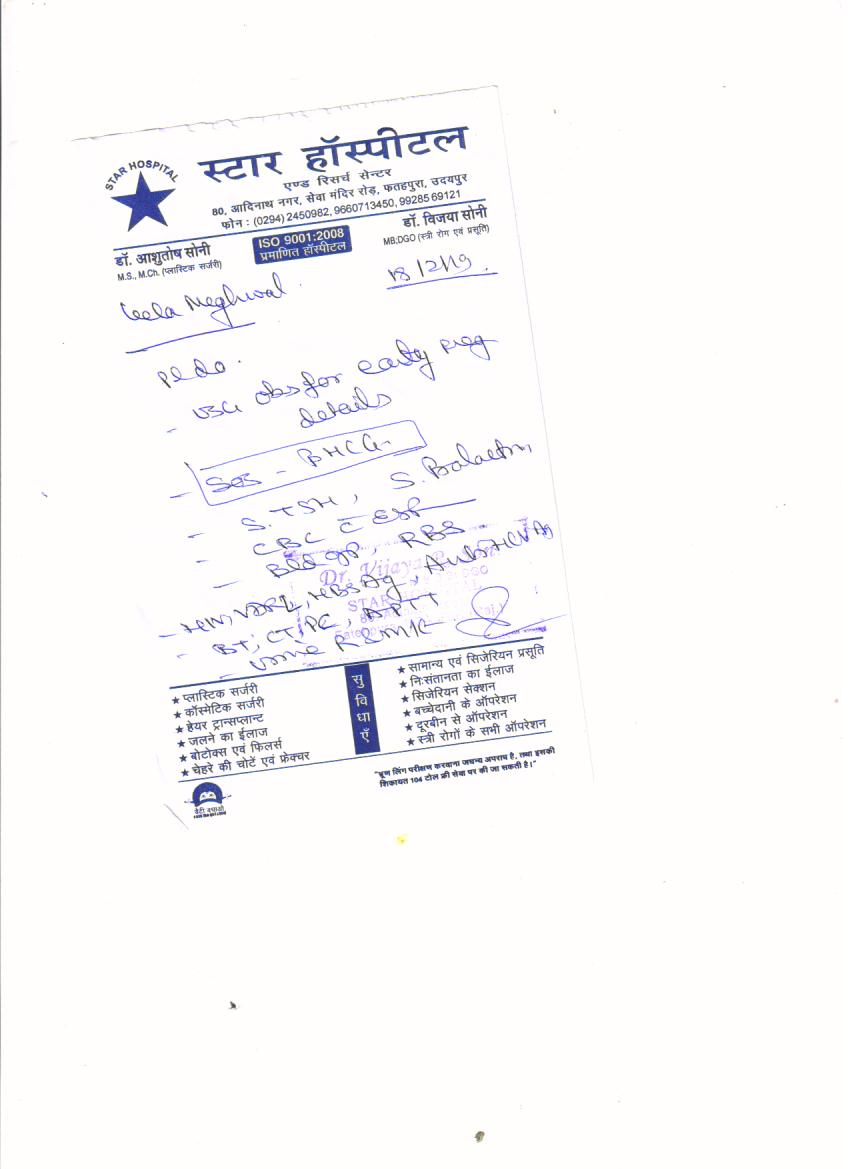 STAR HOSPITAL
स्टार हॉस्पीटल
एण्ड रिसर्च सेन्टर
80, आदिनाथ नगर, सेवा मंदिर रोड़, फतहपुरा, उदयपुर
फोन : (0294) 2450982, 9660713450, 9928569121
डॉ. आशुतोष सोनी
M.S., M.Ch. (प्लास्टिक सर्जरी)
ISO 9001:2008
प्रमाणित हॉस्पीटल
डॉ. विजया सोनी
MB;DGO (स्त्री रोग एवं प्रसूति)
18/2/19.
Leela Meghwal
Pl do.
- USG obs for early preg
details
- SOS - BHCG
- S. TSH, S.
- CBC C ESR
- Bld gp, RBS
Dr. Vijaya
- HIV, VDRL, HBsAg,
STAR
- BT, CT, PC, APTT
- R & M/C
सुविधाएँ
★ प्लास्टिक सर्जरी
★ कॉस्मेटिक सर्जरी
★ हेयर ट्रान्सप्लान्ट
★ जलने का ईलाज
★ बोटोक्स एवं फिलर्स
★ चेहरे की चोटें एवं फ्रेक्चर
★ सामान्य एवं सिजेरियन प्रसूति
★ नि:संतानता का ईलाज
★ सिजेरियन सेक्शन
★ बच्चेदानी के ऑपरेशन
★ दूरबीन से ऑपरेशन
★ स्त्री रोगों के सभी ऑपरेशन
"भ्रूण लिंग परीक्षण करवाना जघन्य अपराध है, तथा इसकी
शिकायत 104 टोल फ्री सेवा पर की जा सकती है।"
बेटी बचाओ